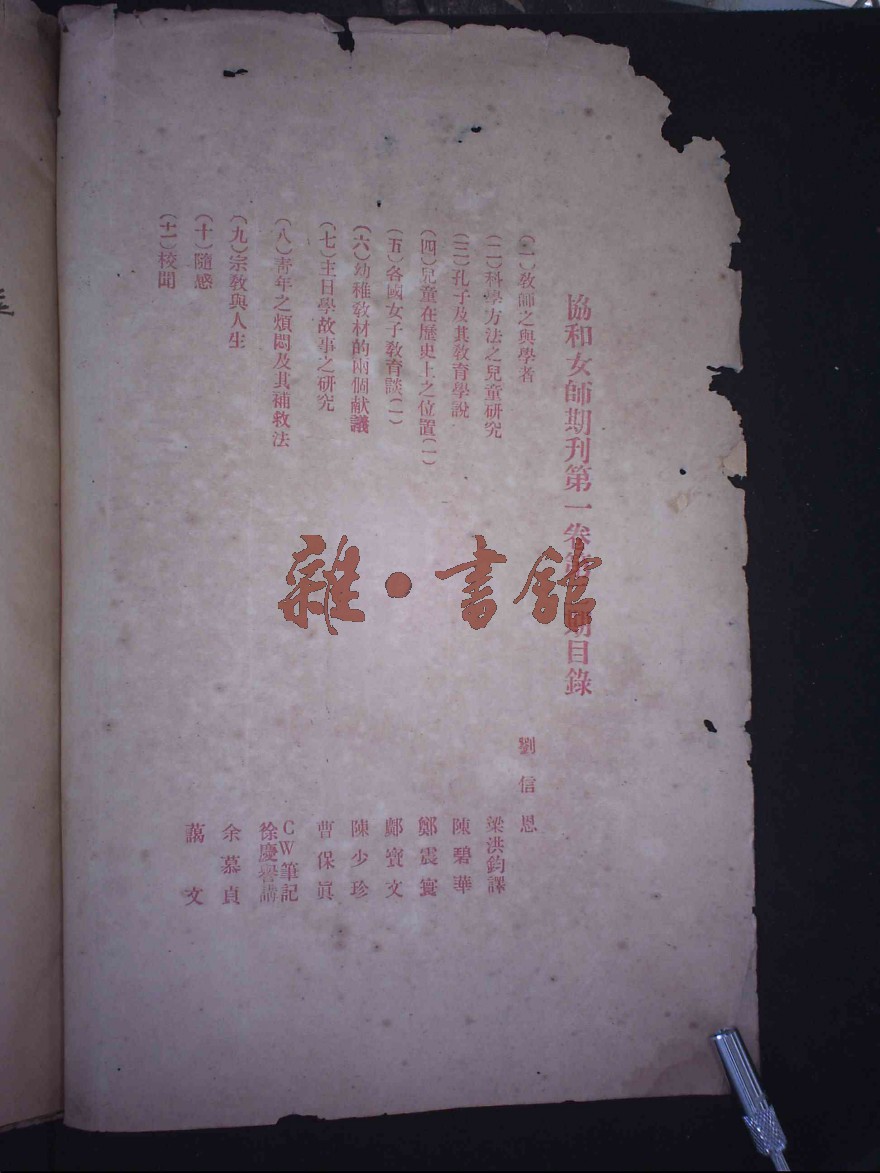 協和女師期刊第一卷第 期目錄
(一)教師之與學者 劉信恩
(二)科學方法之兒童研究 梁洪鈞譯
(三)孔子及其教育學說 陳碧華
(四)兒童在歷史上之位置(一) 鄭震寰
(五)各國女子教育談(一) 鄺寶文
(六)幼稚教材的兩個献議 陳少珍
(七)主日學故事之研究 曹保眞
(八)青年之煩悶及其補救法 CW筆記 徐慶譽講
(九)宗教與人生 余慕貞
(十)隨感 藹文
(十一)校聞
雜·書館